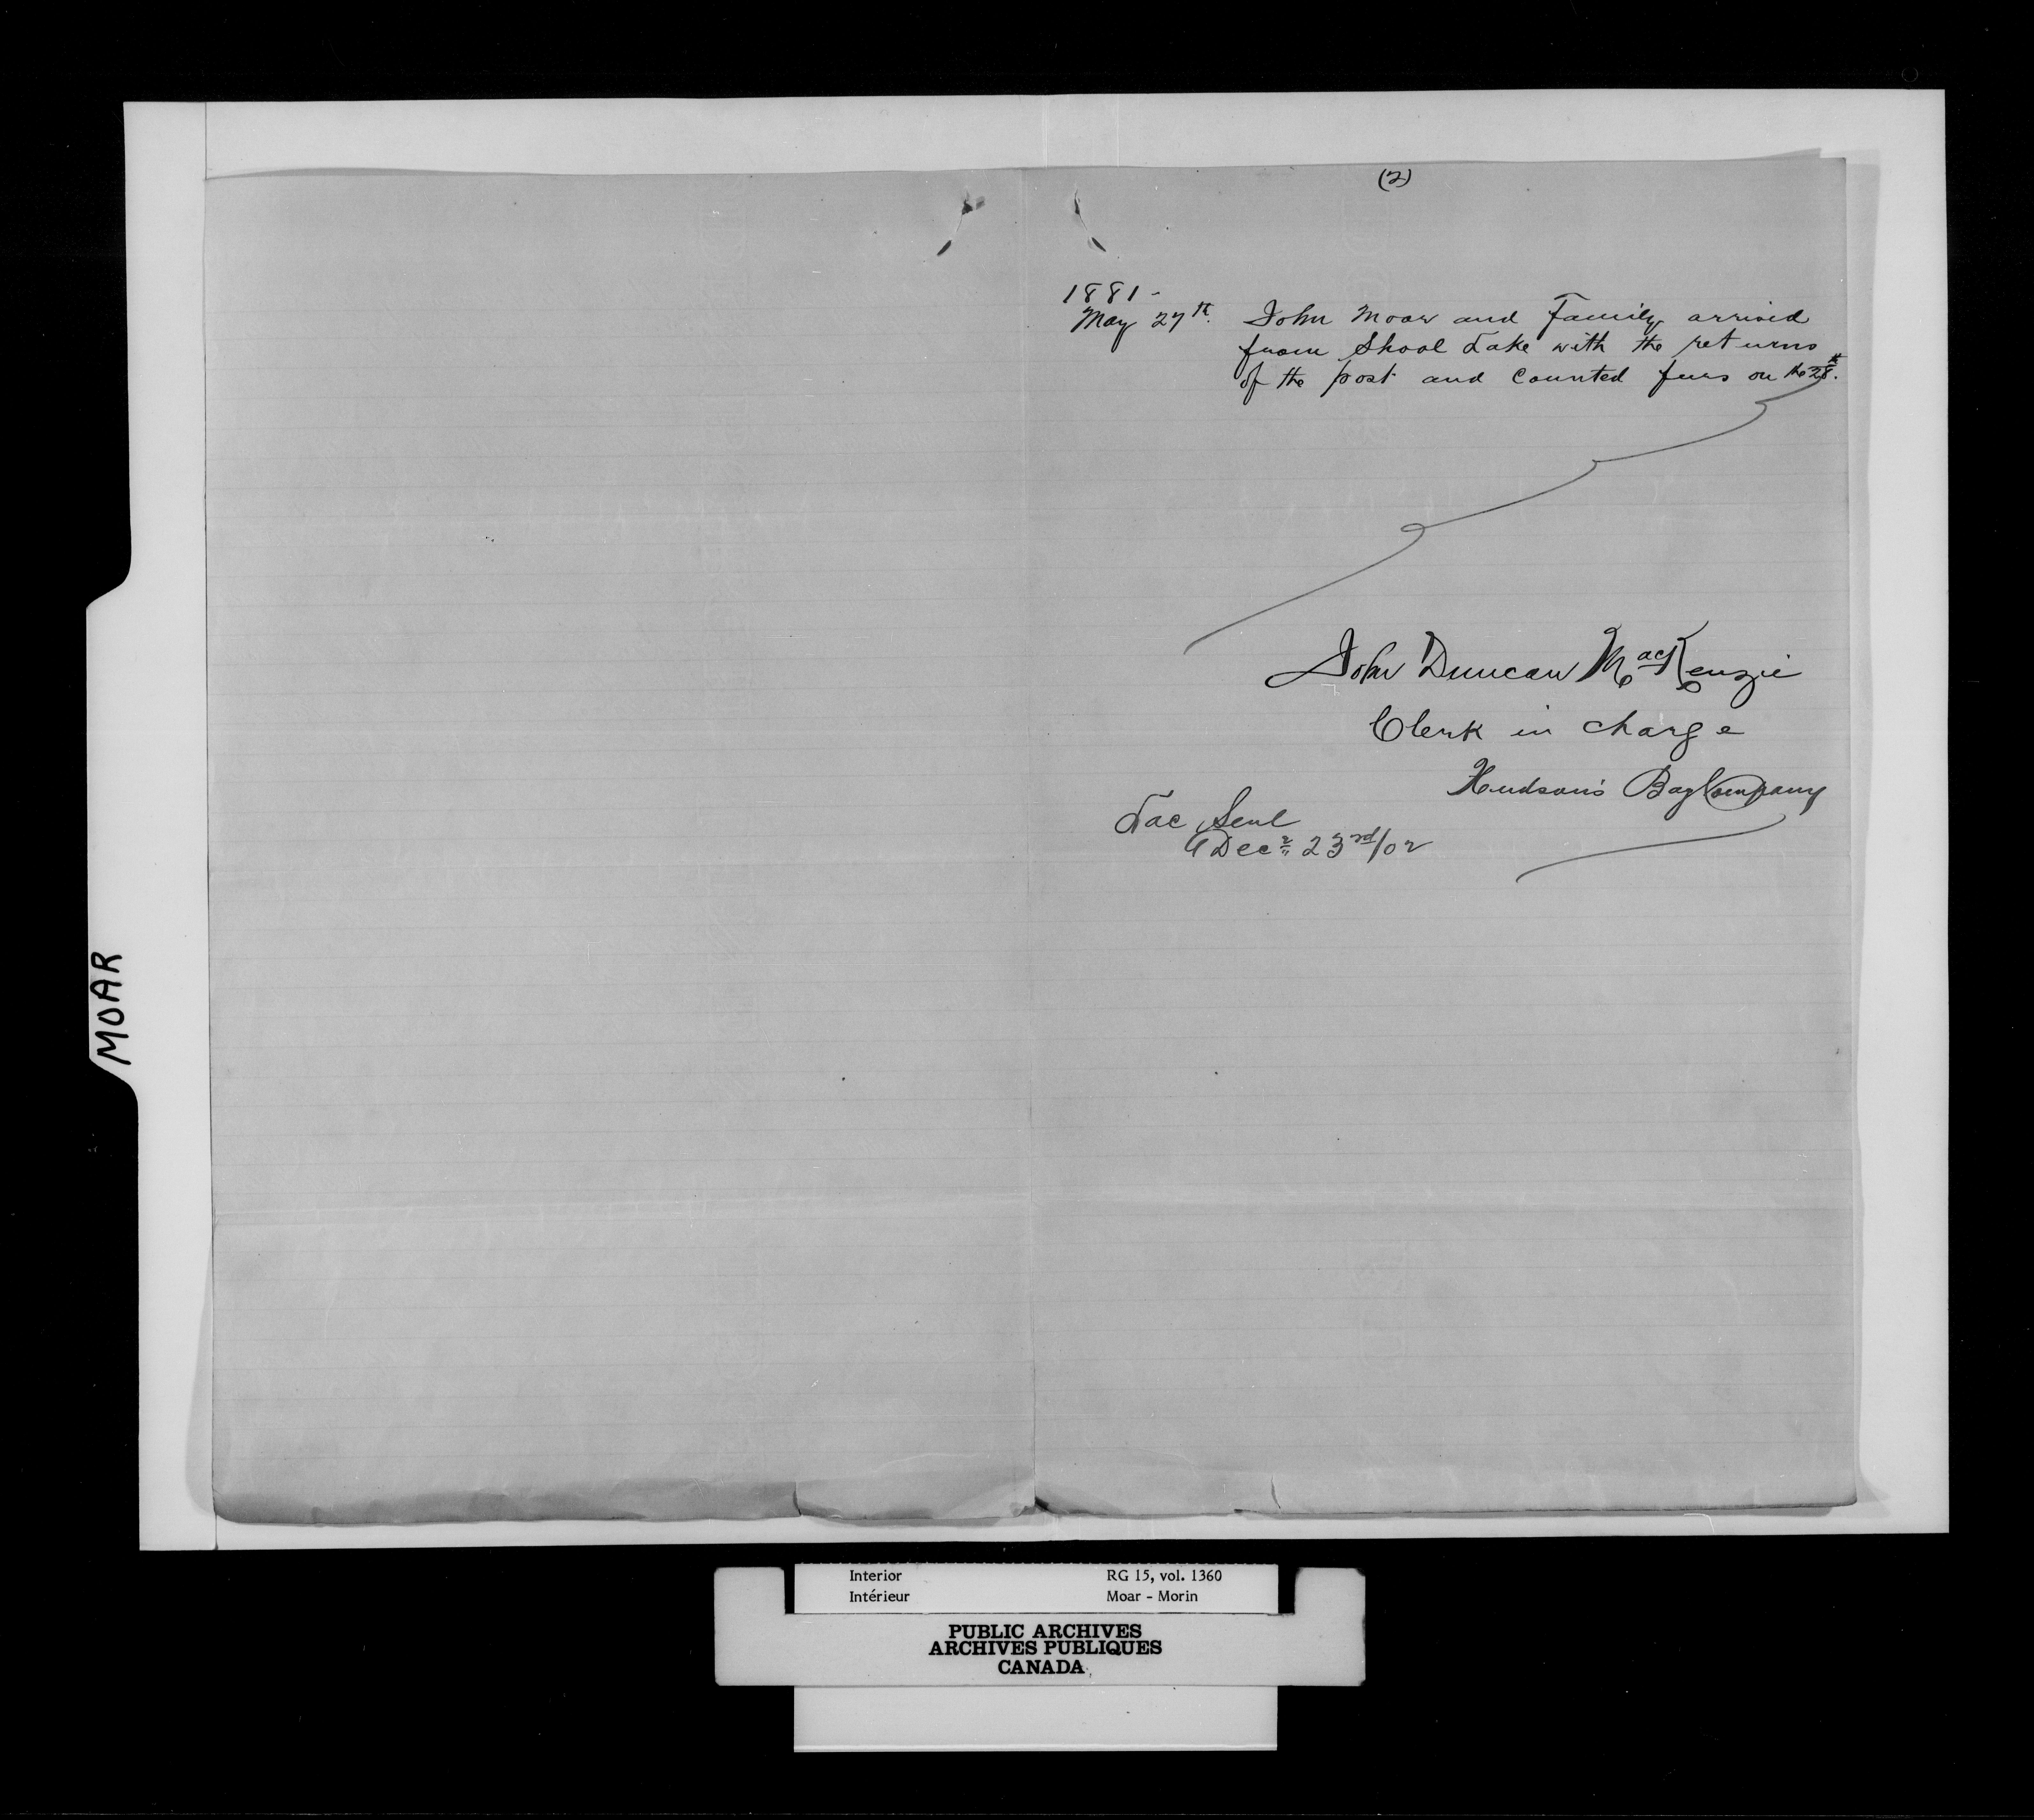 (2)
1881-
May 27th. John Moar and Family arrived
from Shoal Lake with the returns
of the post and Counted furs on the 28th.
John Duncan MacKenzie
Clerk in charge
Hudson's Bay Company
Lac Seul
Decr 23rd/02
MOAR
Interior RG 15, vol. 1360
Intérieur Moar - Morin
PUBLIC ARCHIVES
ARCHIVES PUBLIQUES
CANADA